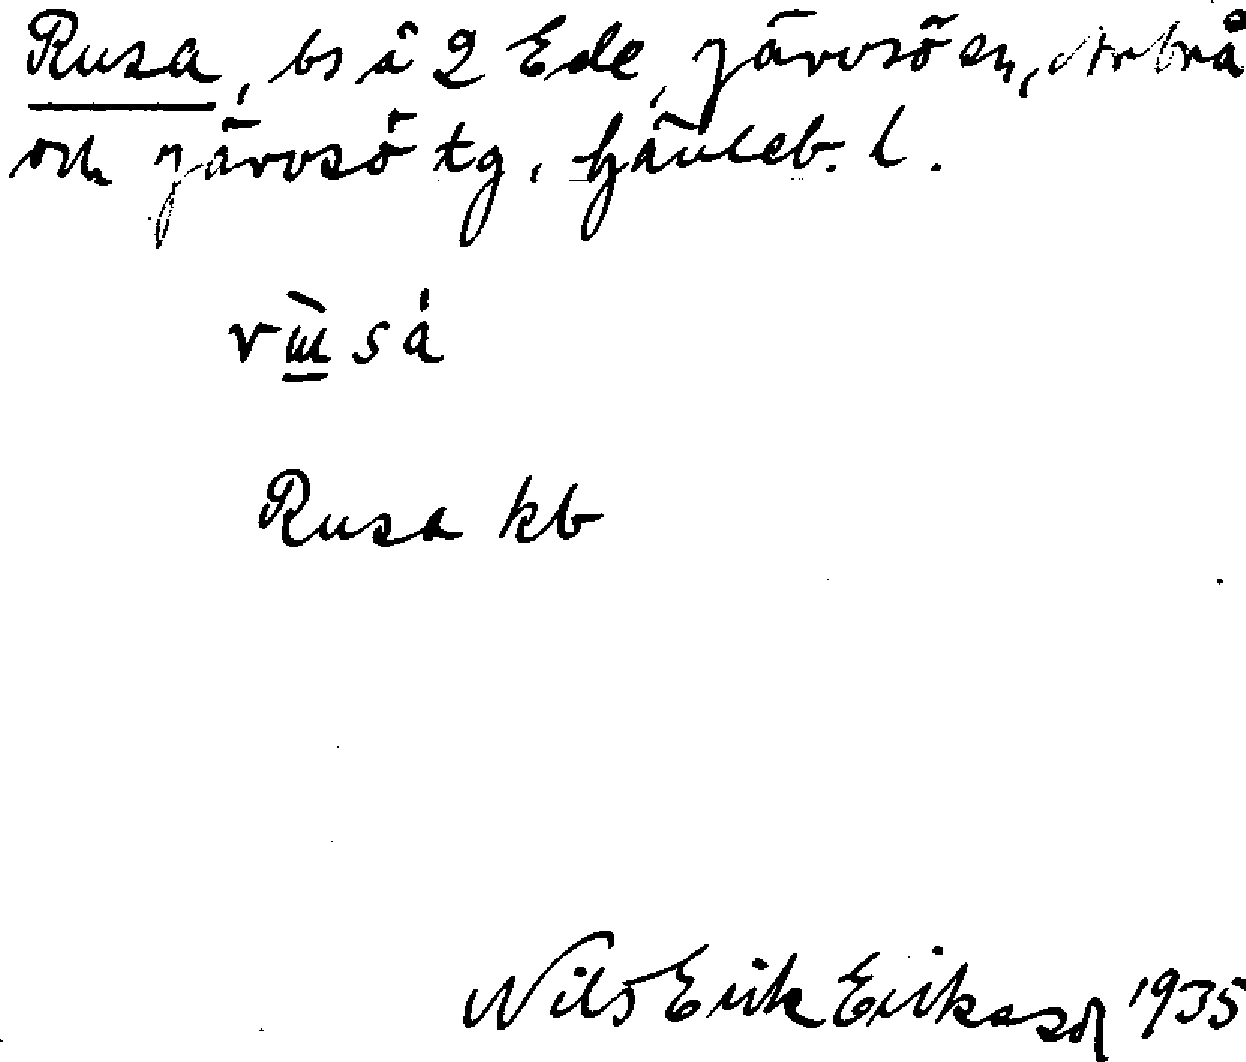 Rusa, bs å 2 Ede, Järvsö sn, Arbrå
och Järvsö tg, Gävleb. l.
Rusa kb
Nils Erik Eriksson 1935